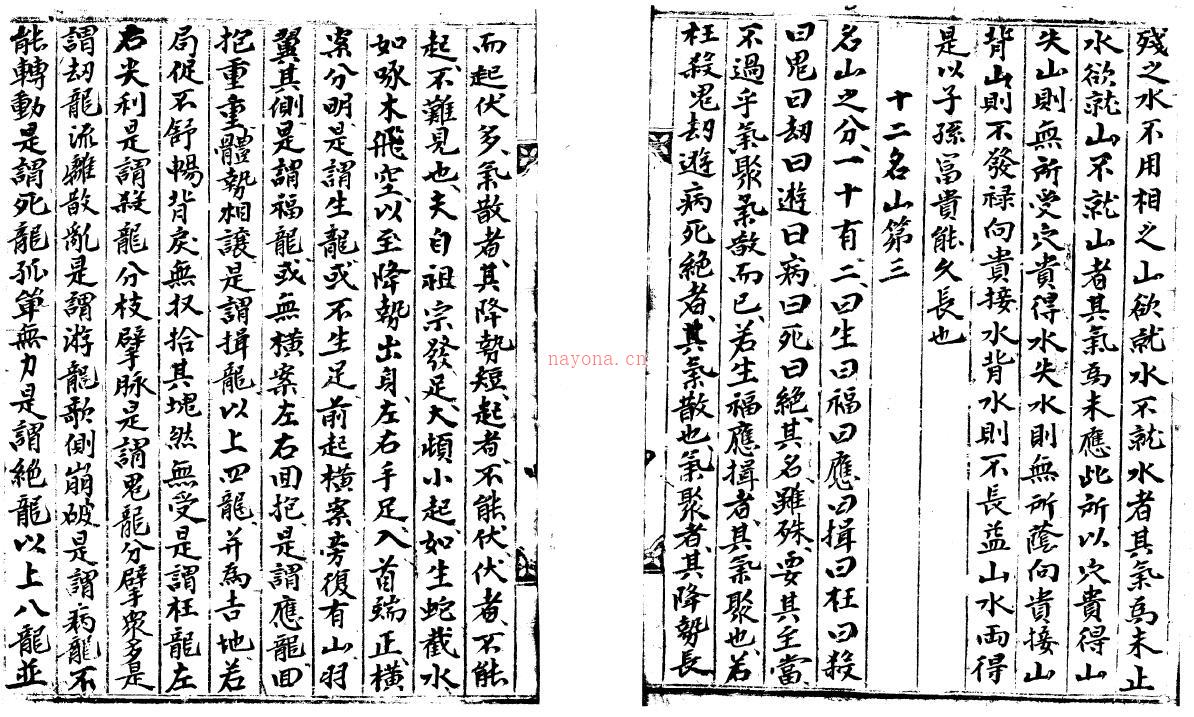 殘之水不用相之山欲就水不就水者其氣爲未止
水欲就山不就山者其氣爲未應此所以穴貴得山
失山則無所受穴貴得水失水則無所蔭向貴接山
背山則不發禄向貴接水背水則不長益山水両得
是以子孫冨貴能久長也
十二名山第三
名山之分一十有二曰生曰福曰應曰揖曰枉曰殺
曰鬼曰刼曰遊曰病曰死曰絶其名雖殊要其至當
不過乎氣聚氣散而已若生福應揖者其氣聚也若
枉殺鬼刼遊病死絶者其氣散也氣聚者其降勢長
而起伏多氣散者其降勢短起者不能伏伏者不能
起不難見也夫自祖宗發足大頓小起如生蛇截水
如啄木飛空以至降勢出身左右手足入首端正橫
案分明是謂生龍或不生足前起橫案旁復有山羽
翼其側是謂福龍或無橫案左右回抱是謂應龍回
抱重重體勢相讓是謂揖龍以上四龍并爲吉地若
局促不舒暢背戾無収拾其塊然無受是謂枉龍左
右尖利是謂殺龍分枝擘脉是謂鬼龍分擘衆多是
謂刼龍流離散亂是謂游龍欹側崩破是謂病龍不
能轉動是謂死龍孤單無力是謂絶龍以上八龍並
nayona.cn